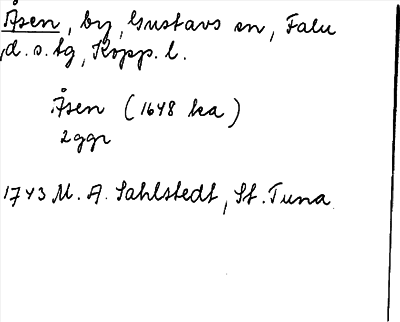 Åsen, by, Gustavs sn, Falu
d. s. tg, Kopp. l.
Åsen (1648 ka)
2 ggr
1743 M. A. Sahlstedt, St. Tuna